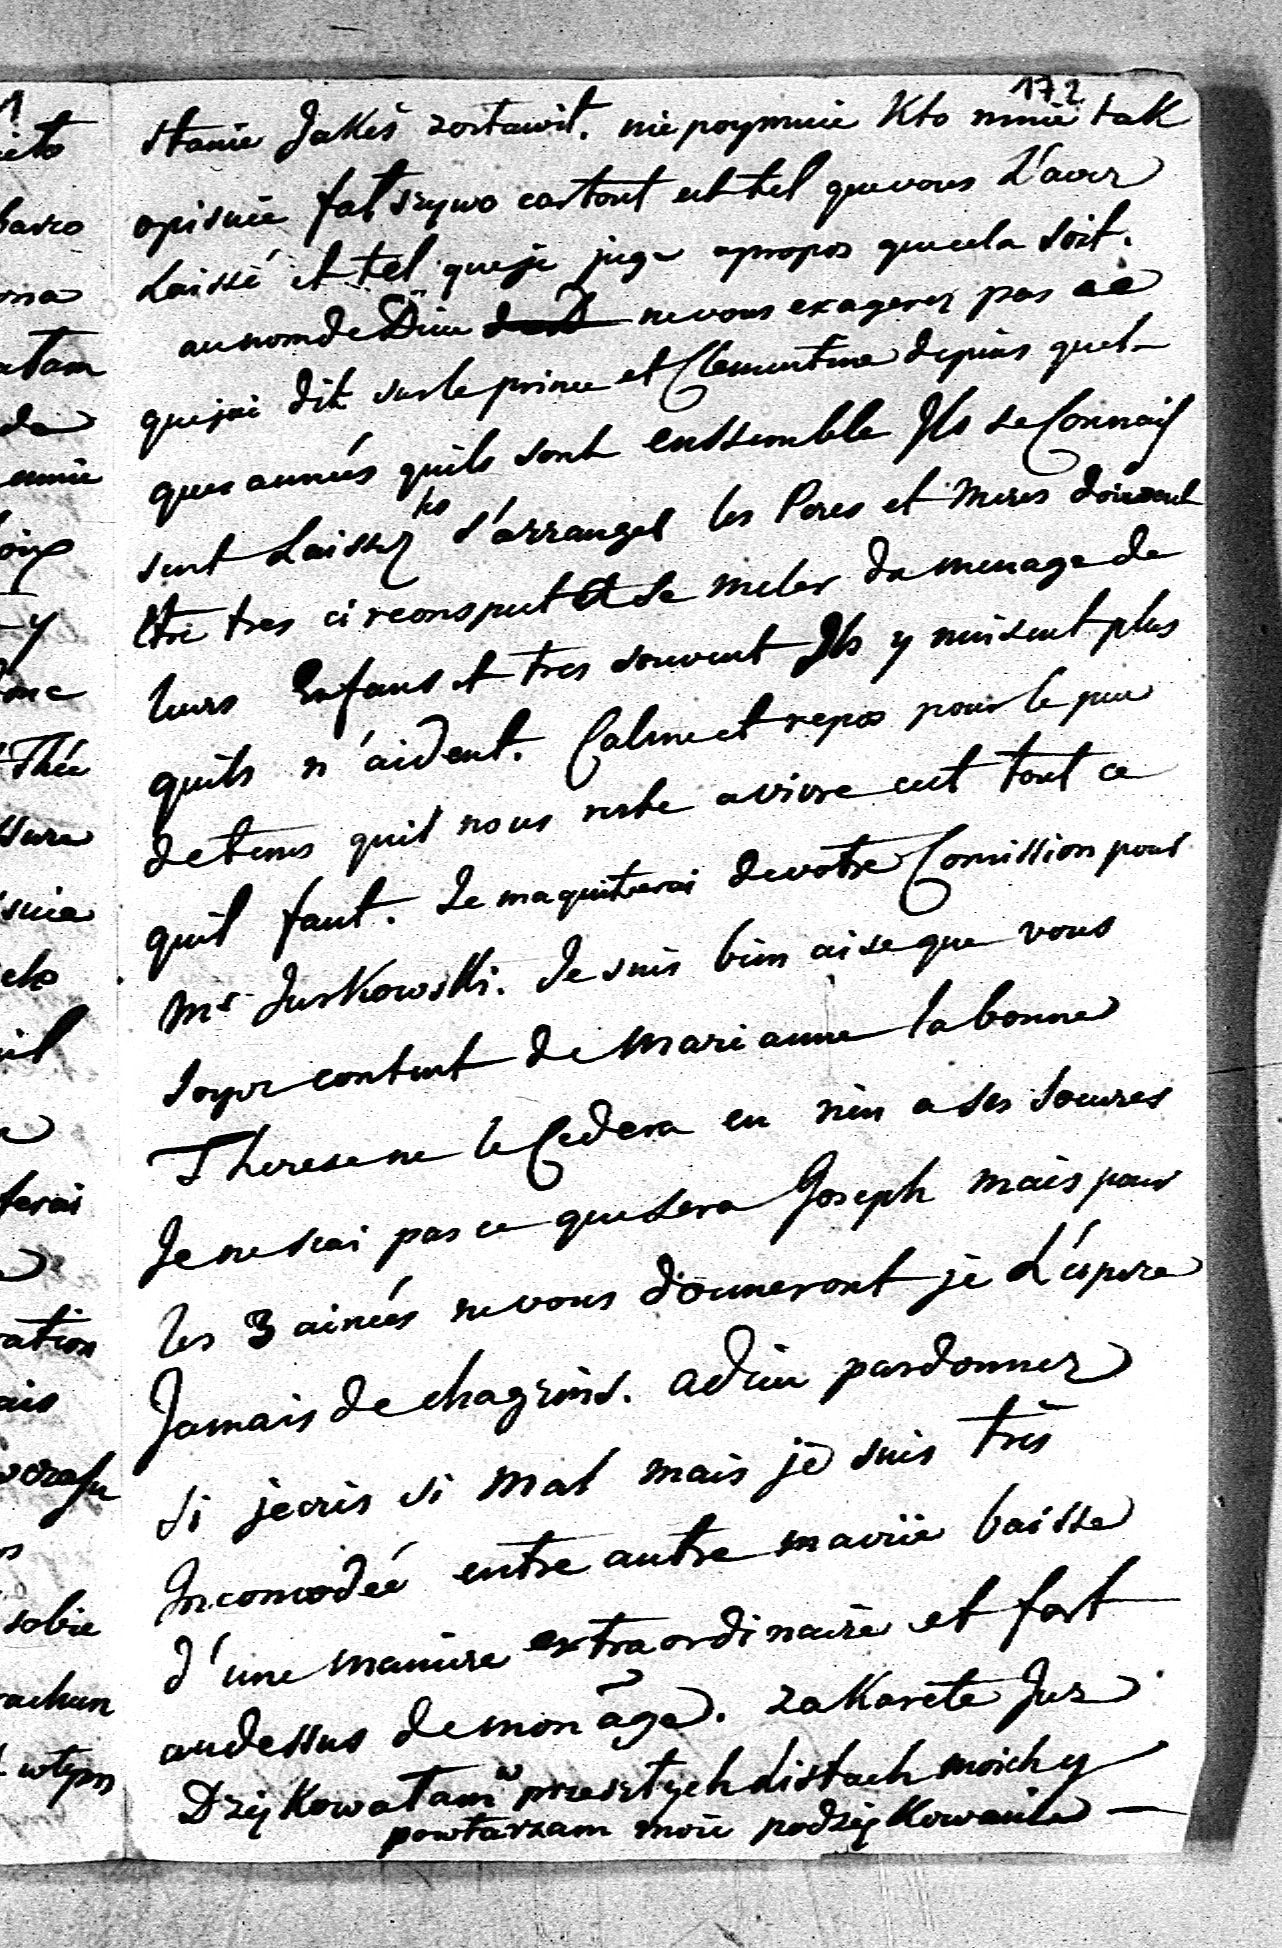 172
stanie Jakeś zostawił. nie poymuie Kto mnie tak
opisuie fałszywo cartout est tel que vous L'avez
Laissé et tel que je juge apropos que cela soit.
au nom de Dieu ne vous exagerez pas ce
que jai dit sur le prince et Clementine depuis quel-
ques années quils sont enssemble Ils se Connaiss
sent Laissez les s'arranger les Peres et Meres doivent
Etre tres circonspect a se meler du menage de
leurs Enfans et tres souvent Ils y nuisent plus
quils n'aident. Calme et repos pour le peu
de tems quil nous reste a vivre cest tout ce
quil faut. Je maquiterai de votre Comission pour
Mr Jurkowski. Je suis bien aise que vous
soyez content de Marianne la bonne
Therese ne le Cedera en rien a ses soeures
Je ne scai pas ce que sera Joseph mais pour
les 3 ainées ne vous donneront je L'espere
Jamais de chagrins. adieu pardonnez
si jecris si mal mais je suis très
Incomodée entre autre ma vüe baisse
d'une maniere extraordinaire et fort
audessus de mon âge. za Karete Juz
Dziękowałam w przeszłych Listach moich y
powtarzam moie podziękowanie —
ieto
barzo
ona
atam
da
mnie
oix
y
Thée
ssure
suie
il
ferai
ration
ais
sobie
rachun